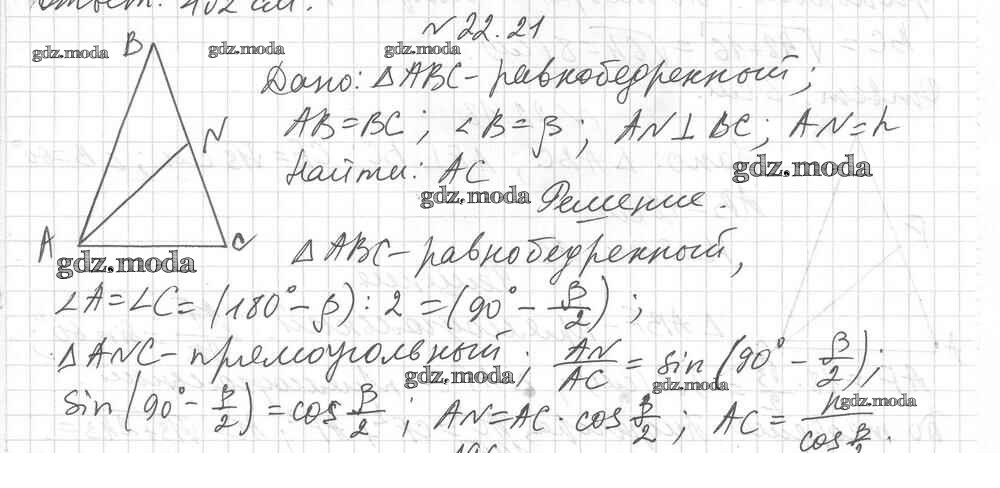 Ответ: 402 см.
№ 22.21
B
gdz.moda gdz.moda gdz.moda
Дано: △ABC - равнобедренный;
AB = BC; ∠B = β; AN ⊥ BC; AN = h
N
gdz.moda
Найти: AC
gdz.moda
Решение.
A C
gdz.moda
△ABC - равнобедренный,
∠A = ∠C = (180° - β) : 2 = (90° - β/2);
△ANC - прямоугольный; AN/AC = sin (90° - β/2);
gdz.moda gdz.moda
sin (90° - β/2) = cos β/2; AN = AC · cos β/2; AC = h/cos β/2.
gdz.moda